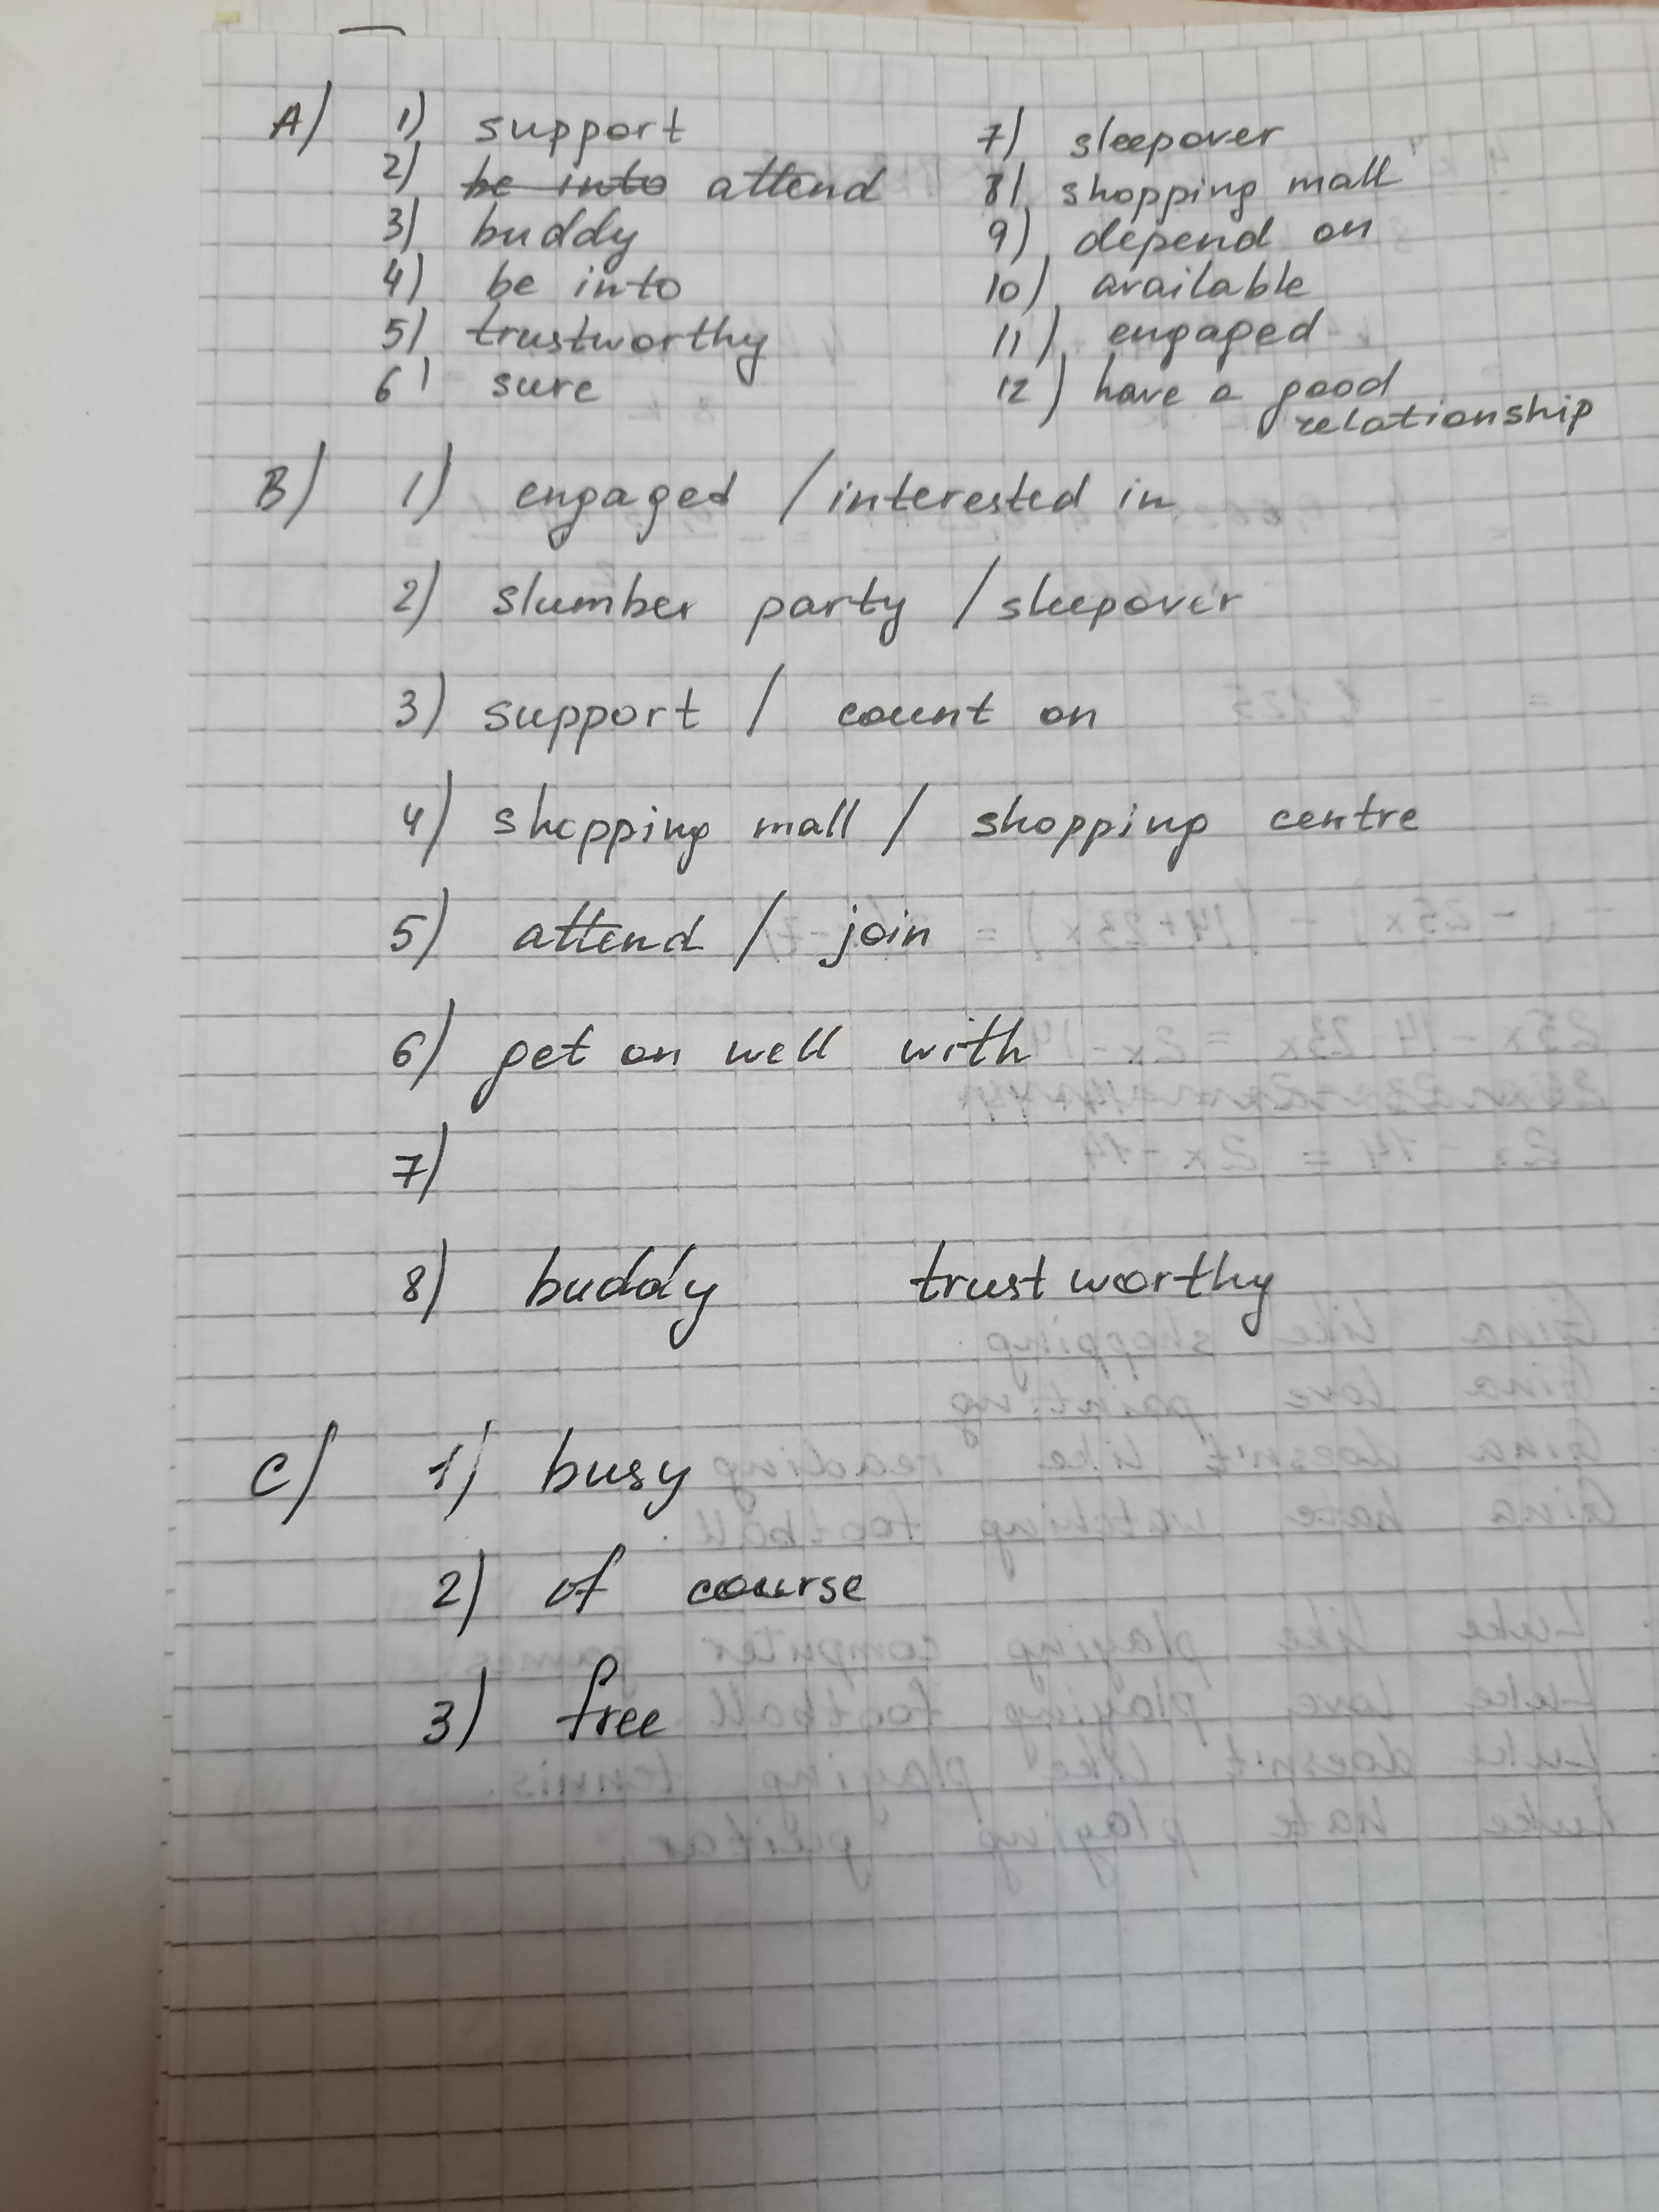 A) 1) support 7) sleepover
2) be into attend 8) shopping mall
3) buddy 9) depend on
4) be into 10) available
5) trustworthy 11) engaged
6) sure 12) have a good
relationship
B) 1) engaged / interested in
2) slumber party / sleepover
3) support / count on
4) shopping mall / shopping centre
5) attend / join
6) get on well with
7)
8) buddy trustworthy
C) 1) busy
2) of course
3) free